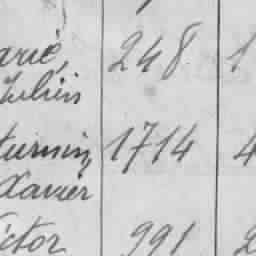 arie, 248 1
Julien
turnin, 1714 4
Xavier
ictor 991 2